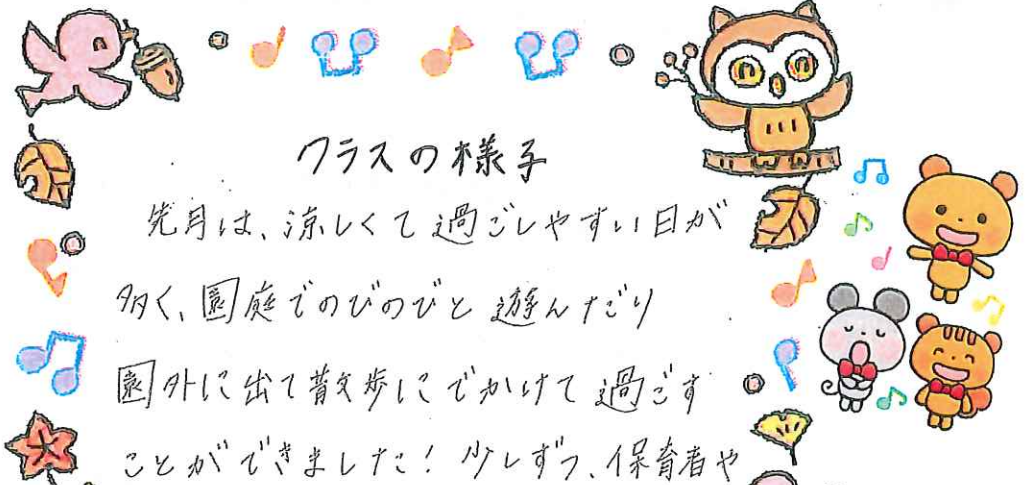 クラスの様子
先月は、涼しくて過ごしやすい日が
多く、園庭でのびのびと遊んだり
園外に出て散歩にでかけて過ごす
ことができました！少しずつ、保育者や